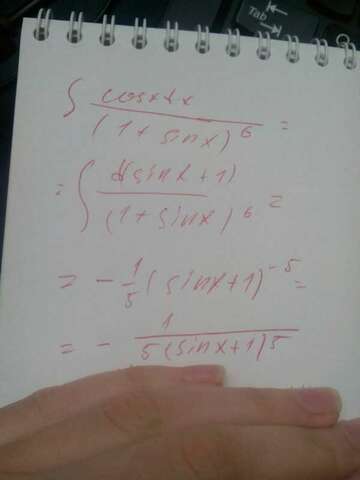 Tab
∫ cosxdx / (1 + sinx)^6 =
= ∫ d(sinx + 1) / (1 + sinx)^6 =
= - 1/5 (sinx + 1)^-5 =
= - 1 / 5(sinx + 1)^5